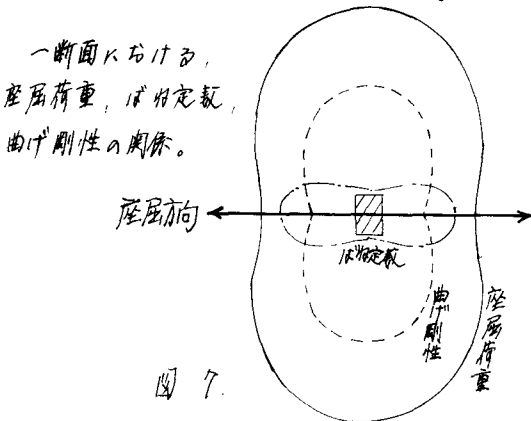 一断面における,
座屈荷重, ばね定数,
曲げ剛性の関係。
座屈方向
ばね定数
曲げ剛性
座屈荷重
図 7.